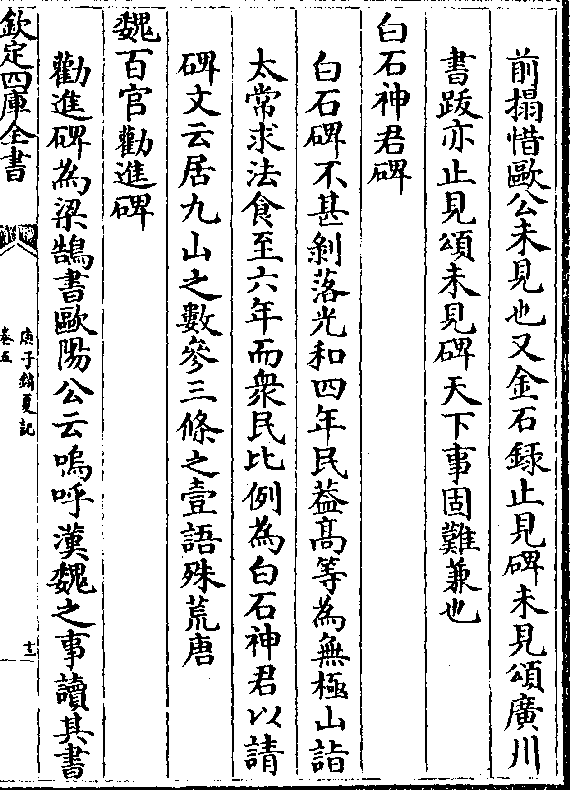 前搨惜歐公未見也又金石録止見碑未見頌廣川
書跋亦止見頌未見碑天下事固難兼也
白石神君碑
白石碑不甚剝落光和四年民葢髙等為無極山詣
太常求法食至六年而衆民比例為白石神君以請
碑文云居九山之數參三條之壹語殊荒唐
魏百官勸進碑
勸進碑為梁鵠書歐陽公云嗚呼漢魏之事讀其書
欽定四庫全書
庚子銷夏記
卷五
十三